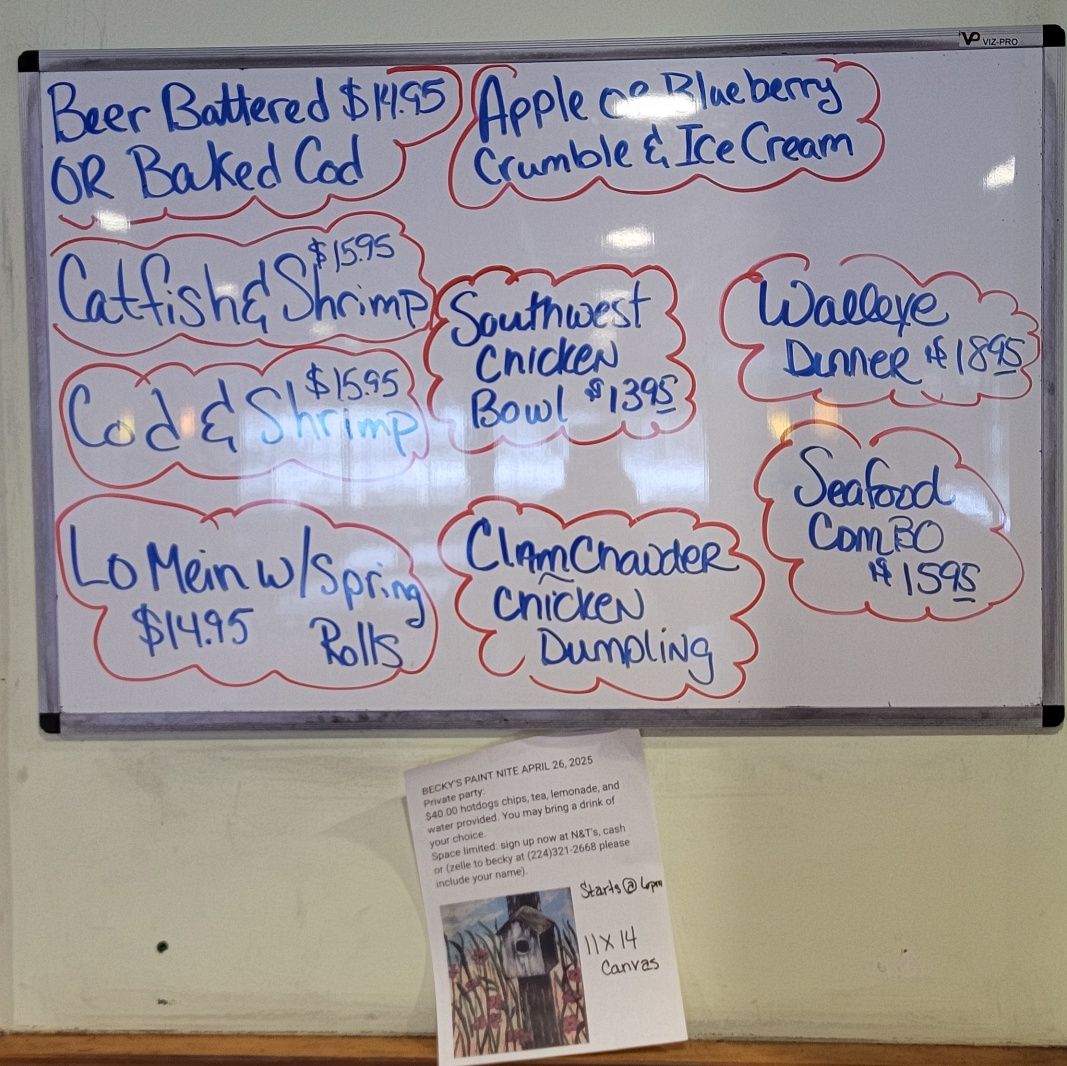 VP VIZ-PRO
Beer Battered $14.95
OR Baked Cod
Apple or Blueberry
Crumble & Ice Cream
$15.95
Catfish & Shrimp
$15.95
Cod & Shrimp
Lo Mein w/Spring
$14.95 Rolls
Southwest
Chicken
Bowl $13.95
Clam Chowder
Chicken
Dumpling
Walleye
Dinner $18.95
Seafood
Combo
$15.95
BECKY'S PAINT NITE APRIL 26, 2025
Private party:
$40.00 hotdogs chips, tea, lemonade, and
water provided. You may bring a drink of
your choice.
Space limited: sign up now at N&T's, cash
or (zelle to becky at (224)321-2668 please
include your name).
Starts @ 6pm
11 x 14
Canvas